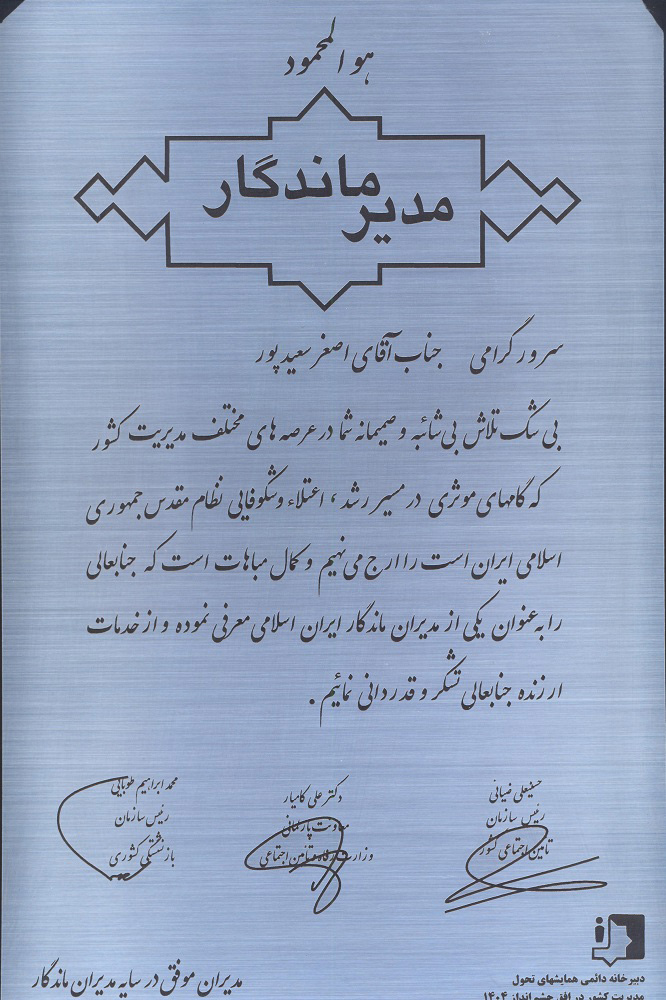 هوالمحمود
مدیر ماندگار
سرور گرامی جناب آقای اصغر سعیدپور
بی شک تلاش بی شائبه و صمیمانه شما در عرصه های مختلف مدیریت کشور
که گامهای موثری در مسیر رشد ، اعتلاء وشکوفایی نظام مقدس جمهوری
اسلامی ایران است را ارج می نهیم و کمال مباهات است که جنابعالی
را به عنوان یکی از مدیران ماندگار ایران اسلامی معرفی نموده و از خدمات
ارزنده جنابعالی تشکر و قدردانی نمائیم .
حسینعلی ضیائی
رئیس سازمان
تامین اجتماعی کشور
دکتر علی کامیار
معاونت پارلمانی
وزارت رفاه و تامین اجتماعی
محمد ابراهیم طوبایی
رئیس سازمان
بازنشستگی کشوری
دبیرخانه دائمی همایشهای تحول
مدیریت کشور در افق چشم انداز ۱۴۰۴
مدیران موفق در سایه مدیران ماندگار